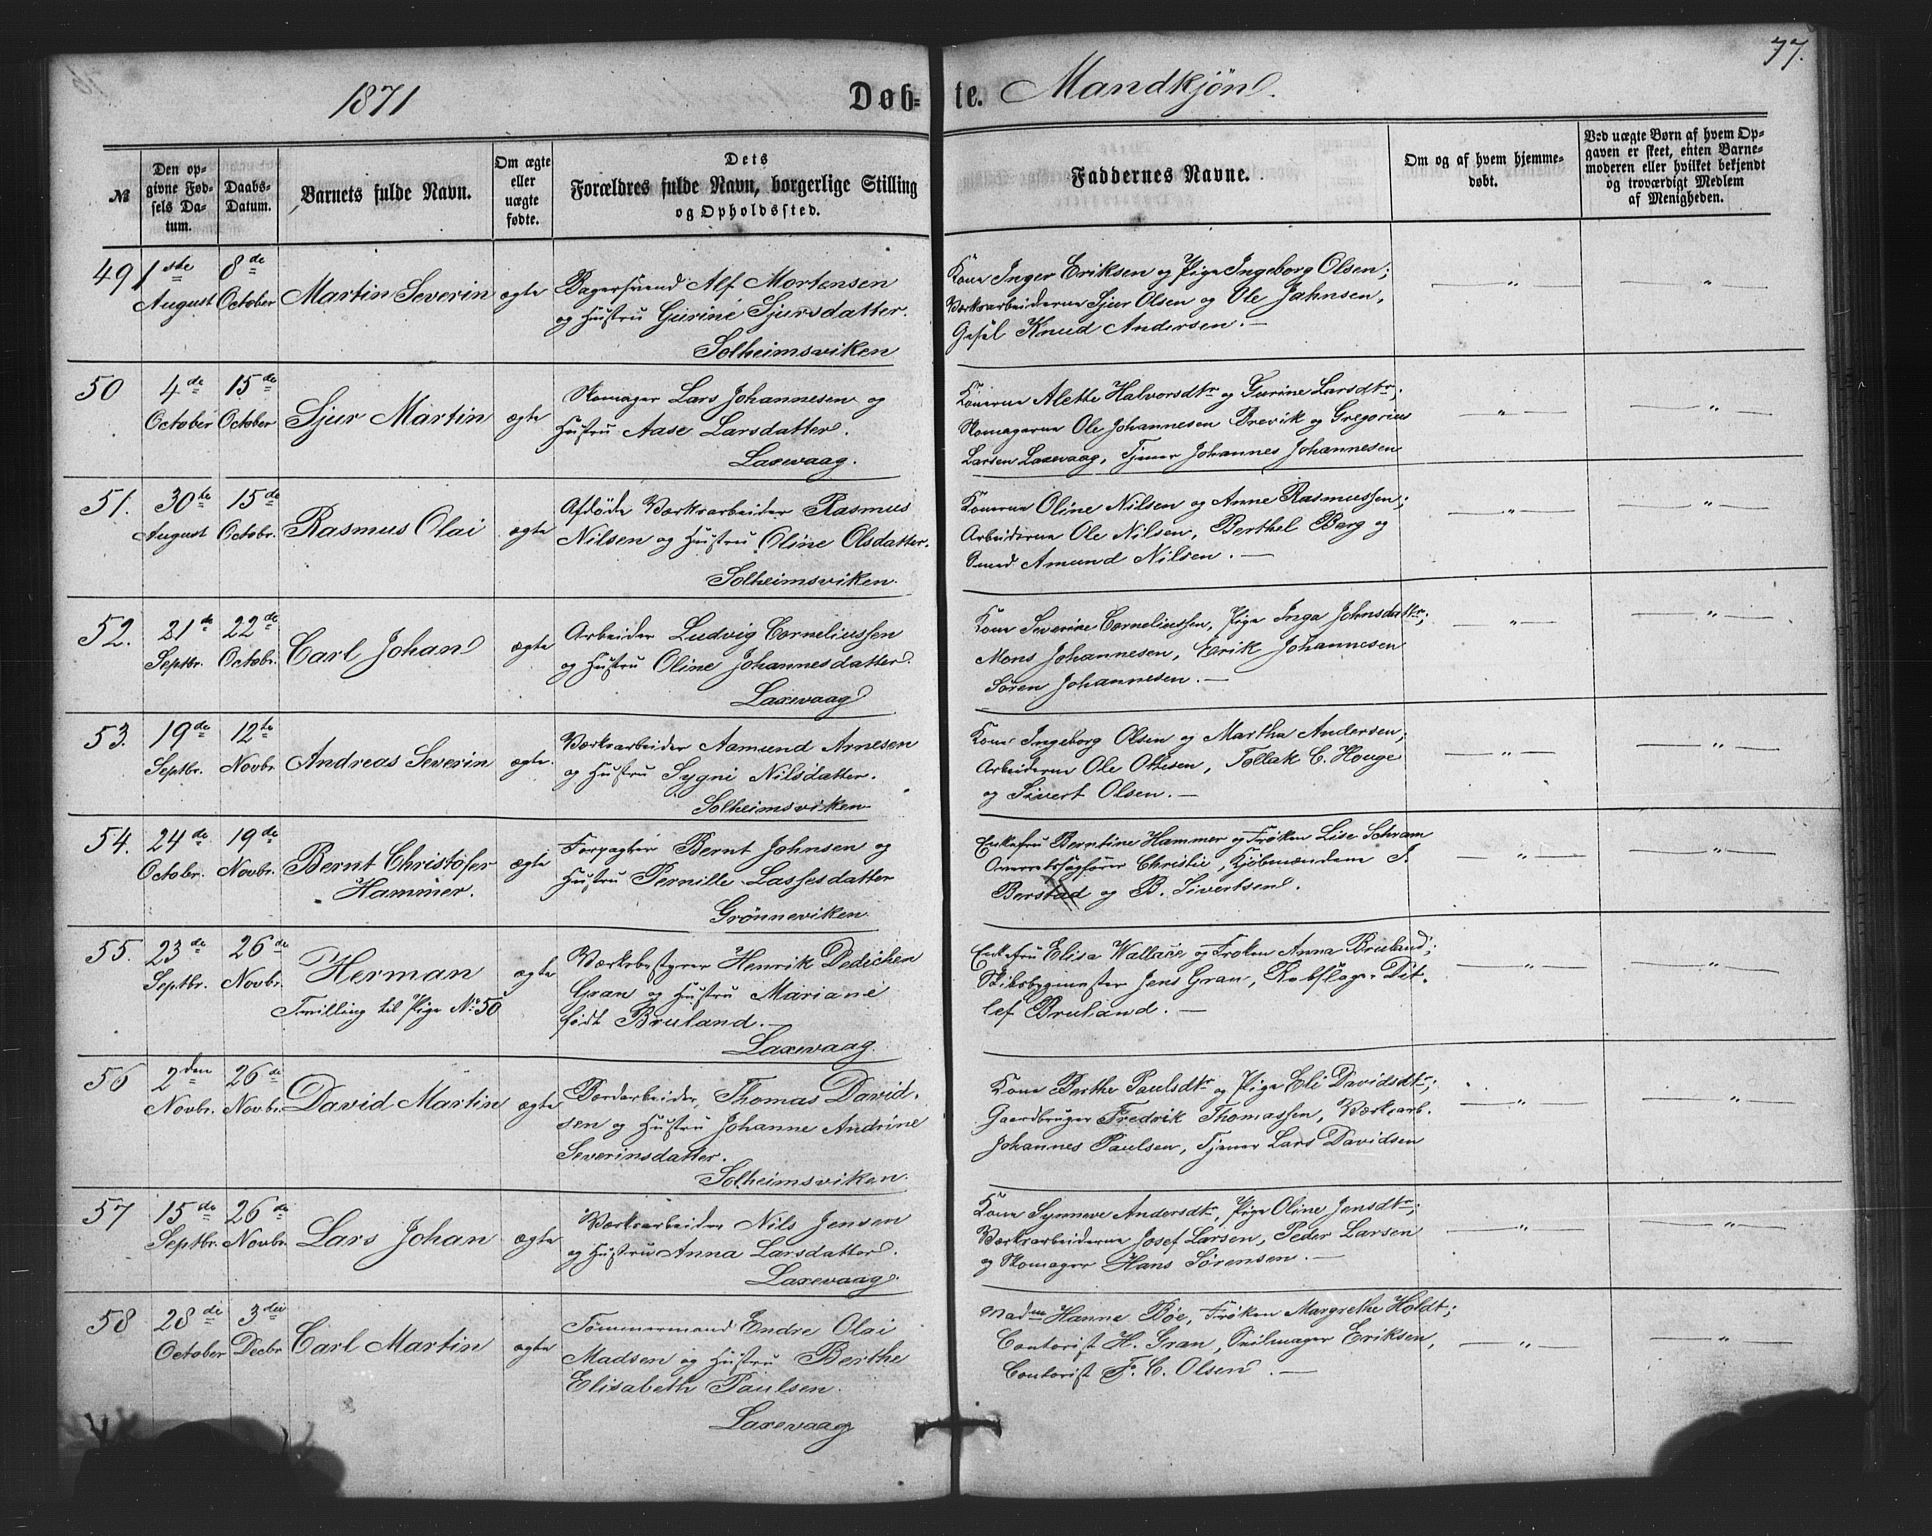 77.
1871
Døb-te. Mandkjøn.
№
Den opgivne Fødsels Datum.
Daabs-Datum.
Barnets fulde Navn.
Om ægte eller uægte fødte.
Dets Forældres fulde Navn, borgerlige Stilling og Opholdssted.
Faddernes Navne.
Om og af hvem hjemmedøbt.
Ved uægte Børn af hvem Opgaven er skeet, enten Barnemoderen eller hvilket bekjendt og troværdigt Medlem af Menigheden.
49 1ste August 8de October Martin Severin ægte
Bagersvend Alf Mortensen
og Hustru Gurine Sjursdatter.
Solheimsviken
Kone Inger Eriksen og Pige Ingeborg Olsen;
Værksarbeiderne Sjur Olsen og Ole Jahnsen,
Gesel Knud Andersen. —
— " — — " —
50 4de October 15de October Sjur Martin ægte
Skomager Lars Johannesen og
Hustru Aase Larsdatter.
Laxevaag.
Konerne Alette Halvorsdtr og Gurine Larsdtr;
Skomagerne Ole Johannesen Brevik og Gregorius
Larsen Laxevaag, Tjener Johannes Johannesen
— " — — " —
51. 30te August 15de Octobr. Rasmus Olai ægte
Afdøde Værksarbeider Rasmus
Nilsen og Hustru Oline Olsdatter.
Solheimsviken.
Konerne Oline Nilsen og Anne Rasmussen;
Arbeiderne Ole Nilsen, Berthel Berg og
Amund Nilsen. —
— " — — " —
52. 21de Septbr. 22de Octobr. Carl Johan ægte
Arbeider Ludvig Corneliussen
og Hustru Oline Johannesdatter.
Laxevaag
Kone Severine Corneliussen, Pige Inga Johnsdattr;
Mons Johannesen, Erik Johannesen
Søren Johannesen. —
— " — — " —
53. 19de Septbr. 12te Novbr. Andreas Severin ægte.
Værksarbeider Aamund Arnesen
og Hustru Sygni Nilsdatter.
Solheimsviken
Kone Ingeborg Olsen og Martha Andersen;
Arbeiderne Ole Ottesen, Tollak C. Houge
og Sivert Olsen. —
— " — — " —
54. 24de Octobr. 19de Novbr. Bernt Christofer
Hammer. ægte
Forpagter Bernt Johnsen og
Hustru Pernille Lassesdatter
Grönneviken.
Enkefru Berntine Hammer og Frøken Lise Schram
Overretssagfører Christie, Kjöbmændene J.
Berstad og B. Sivertsen.
— " — — " —
55. 23de Septbr. 26de Novbr. Herman
Tvilling til Pige No 50 ægte
Værksbestyrer Henrik Dedichen
Gran og Hustru Mariane
født Bruland. —
Laxevaag.
Enkefru Elisa Wallace og Frøken Anna Bruland;
Skibsbygmester Jens Gran, Dit-
lef Bruland. —
— " — — " —
56 2den Novbr. 26de Novbr. David Martin ægte
Bordarbeider Thomas David-
sen og Hustru Johanne Andrine
Severinsdatter.
Solheimsviken.
Kone Berthe Paulsdtr og Pige Eli Davidsdtr;
Gaardbruger Fredrik Thomassen, Værksarb.
Johannes Paulsen, Tjener Lars Davidsen
— " — — " —
57 15de Septbr. 26de Novbr. Lars Johan ægte
Værksarbeider Nils Jensen
og Hustru Anna Larsdatter.
Laxevaag.
Kone Synneve Andersdtr, Pige Oline Jensdtr;
Værksarbeiderne Josef Larsen, Peder Larsen
og Skomager Hans Sörensen. —
— " — — " —
58 28de October 3die Decbr Carl Martin ægte
Tømmermand Endre Olai
Madsen og Hustru Berthe
Elisabeth Paulsen.
Laxevaag
Madme Hanne Böe, Frøken Margrethe Holdt;
Contorist H. Gran, Seilmager Eriksen,
Contorist F. C. Olsen. —
— " — — " —